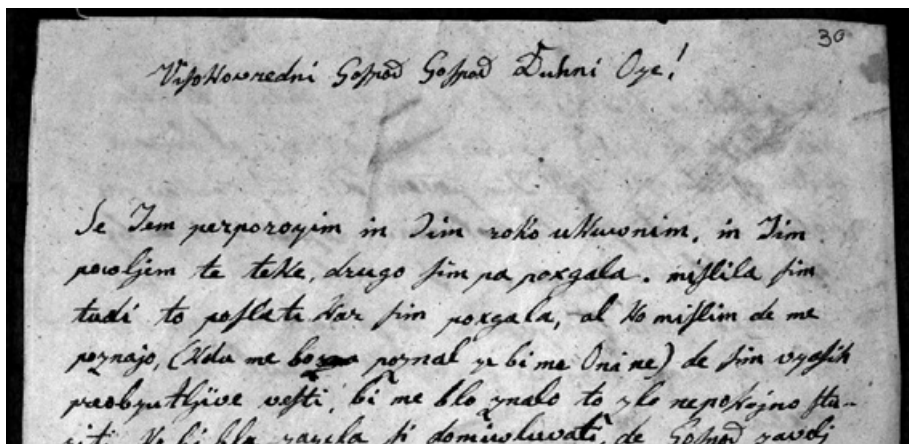 30
Visokovredni Gospod Gospod Duhni Oze!
Se Jem perporozim in Jim roko ukuvonim, in Jim
povoljem te teke, drugo sim pa poxgala. mislila sim
tudi to poslati kar sim poxgala, al ko mislim de me
poznajo, (kdu me poznal ze bi me Oni ne) de sim vzasih
preobzutljive vesti, bi me blo znalo to zlo nepokojno stu-
riti. Ko bi bla zazela si domiuvluvati, de Gospod zavolj